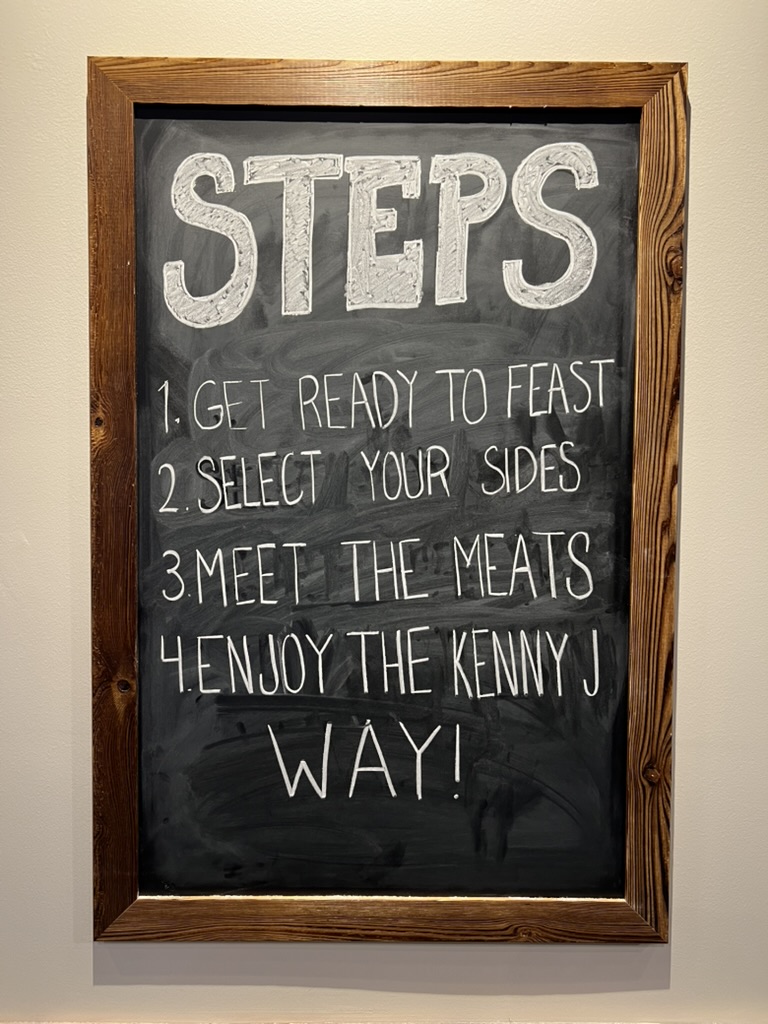 STEPS
1. GET READY TO FEAST
2. SELECT YOUR SIDES
3. MEET THE MEATS
4. ENJOY THE KENNY J
WAY!